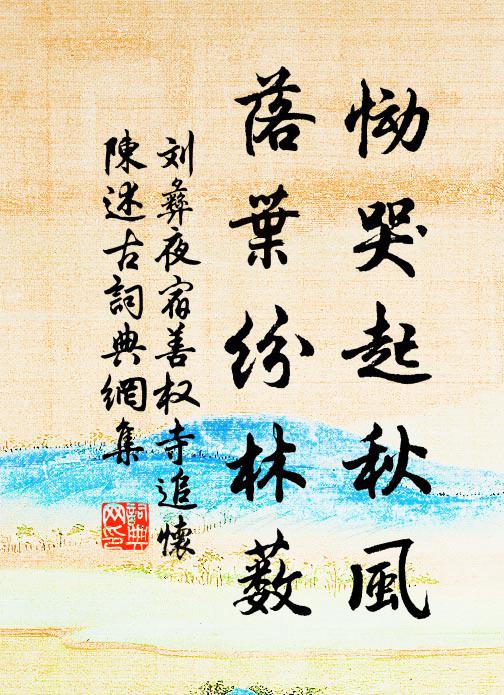 恸哭起秋風
落葉紛林薮
刘彝夜宿善权寺追懷
陳述古詞典網集
詞典
网印